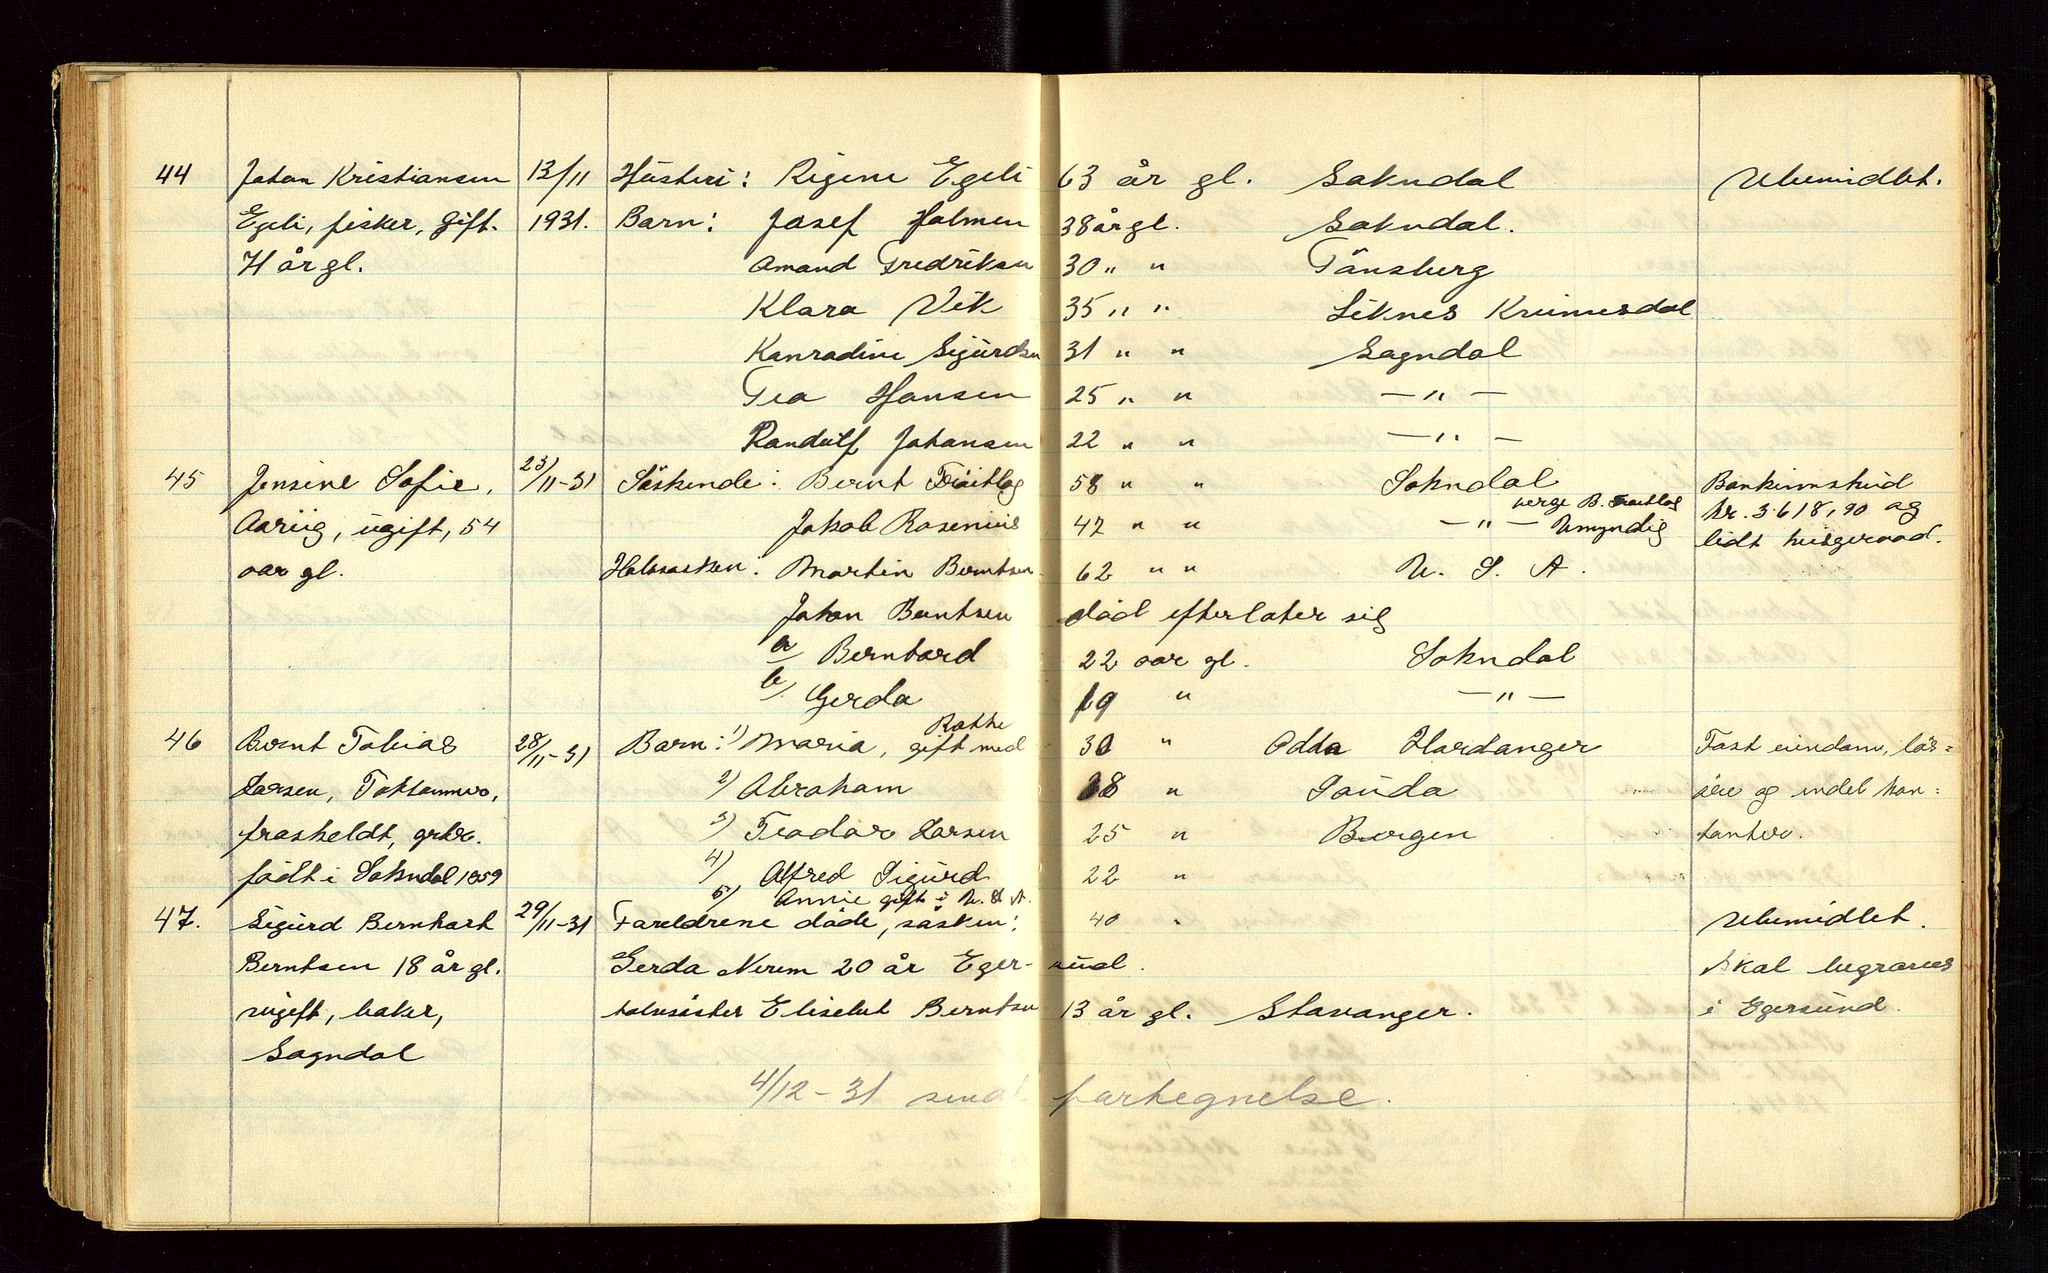 44 Johan Kristiansen 13/11 Hustru: Rigine Egeli 63 år gl. Sokndal Ubemidlet.
Egeli, fisker, gift. 1931. Barn: Josef Holmen 38 år gl. Sokndal.
71 år gl. Amand Fredriksen 30 " " Tönsberg
Klara Vik 35 " " Liknes Kvinesdal
Konradine Sigurdsen 31 " " Sogndal
Tea Hansen 25 " " — " —
Randulf Johansen 22 " " — " —
45 Jensine Sofie, 23/11-31 Söskende: Bernt Tröitlag 58 " " Sokndal Bankinnskud
Aarüg, ugift, 54 Jakob Rosenius 47 " " — " — verge B. Tröitlag Umyndig kr. 3618,90 og
aar gl. Halvsösken: Martin Berntsen 62 " " U. S. A. lidt husgeraad.
Johan Berntsen död efterlater sig
a/ Berntard 22 aar gl. Sokndal
b/ Gerda 19 " — " —
46 Bernt Tobias 28/11-31 Barn: 1) Maria, gift med Rakke 30 " Odda Hardanger Fast eiendom, lös=
Larsen, 2) Abraham 28 " Sauda öre og endel kon=
fraskeldt, 3) Teodor Larsen 25 " Bergen tanter.
födt i Sokndal 1859 4) Alfred Sigurd 22 "
5) Annie gift i U. S. A.
47. Sigurd Bernhart 29/11-31 Foreldrene döde, sösken: 40 " Ubemidlet.
Berntsen 18 år gl. Gerda Nerem 20 år Eger- sund. Skal begraves
ugift, baker, halvsöster Elisebet Berntsen 13 år gl. Stavanger. i Egersund.
Sogndal
4/12-31 sendt fortegnelse.